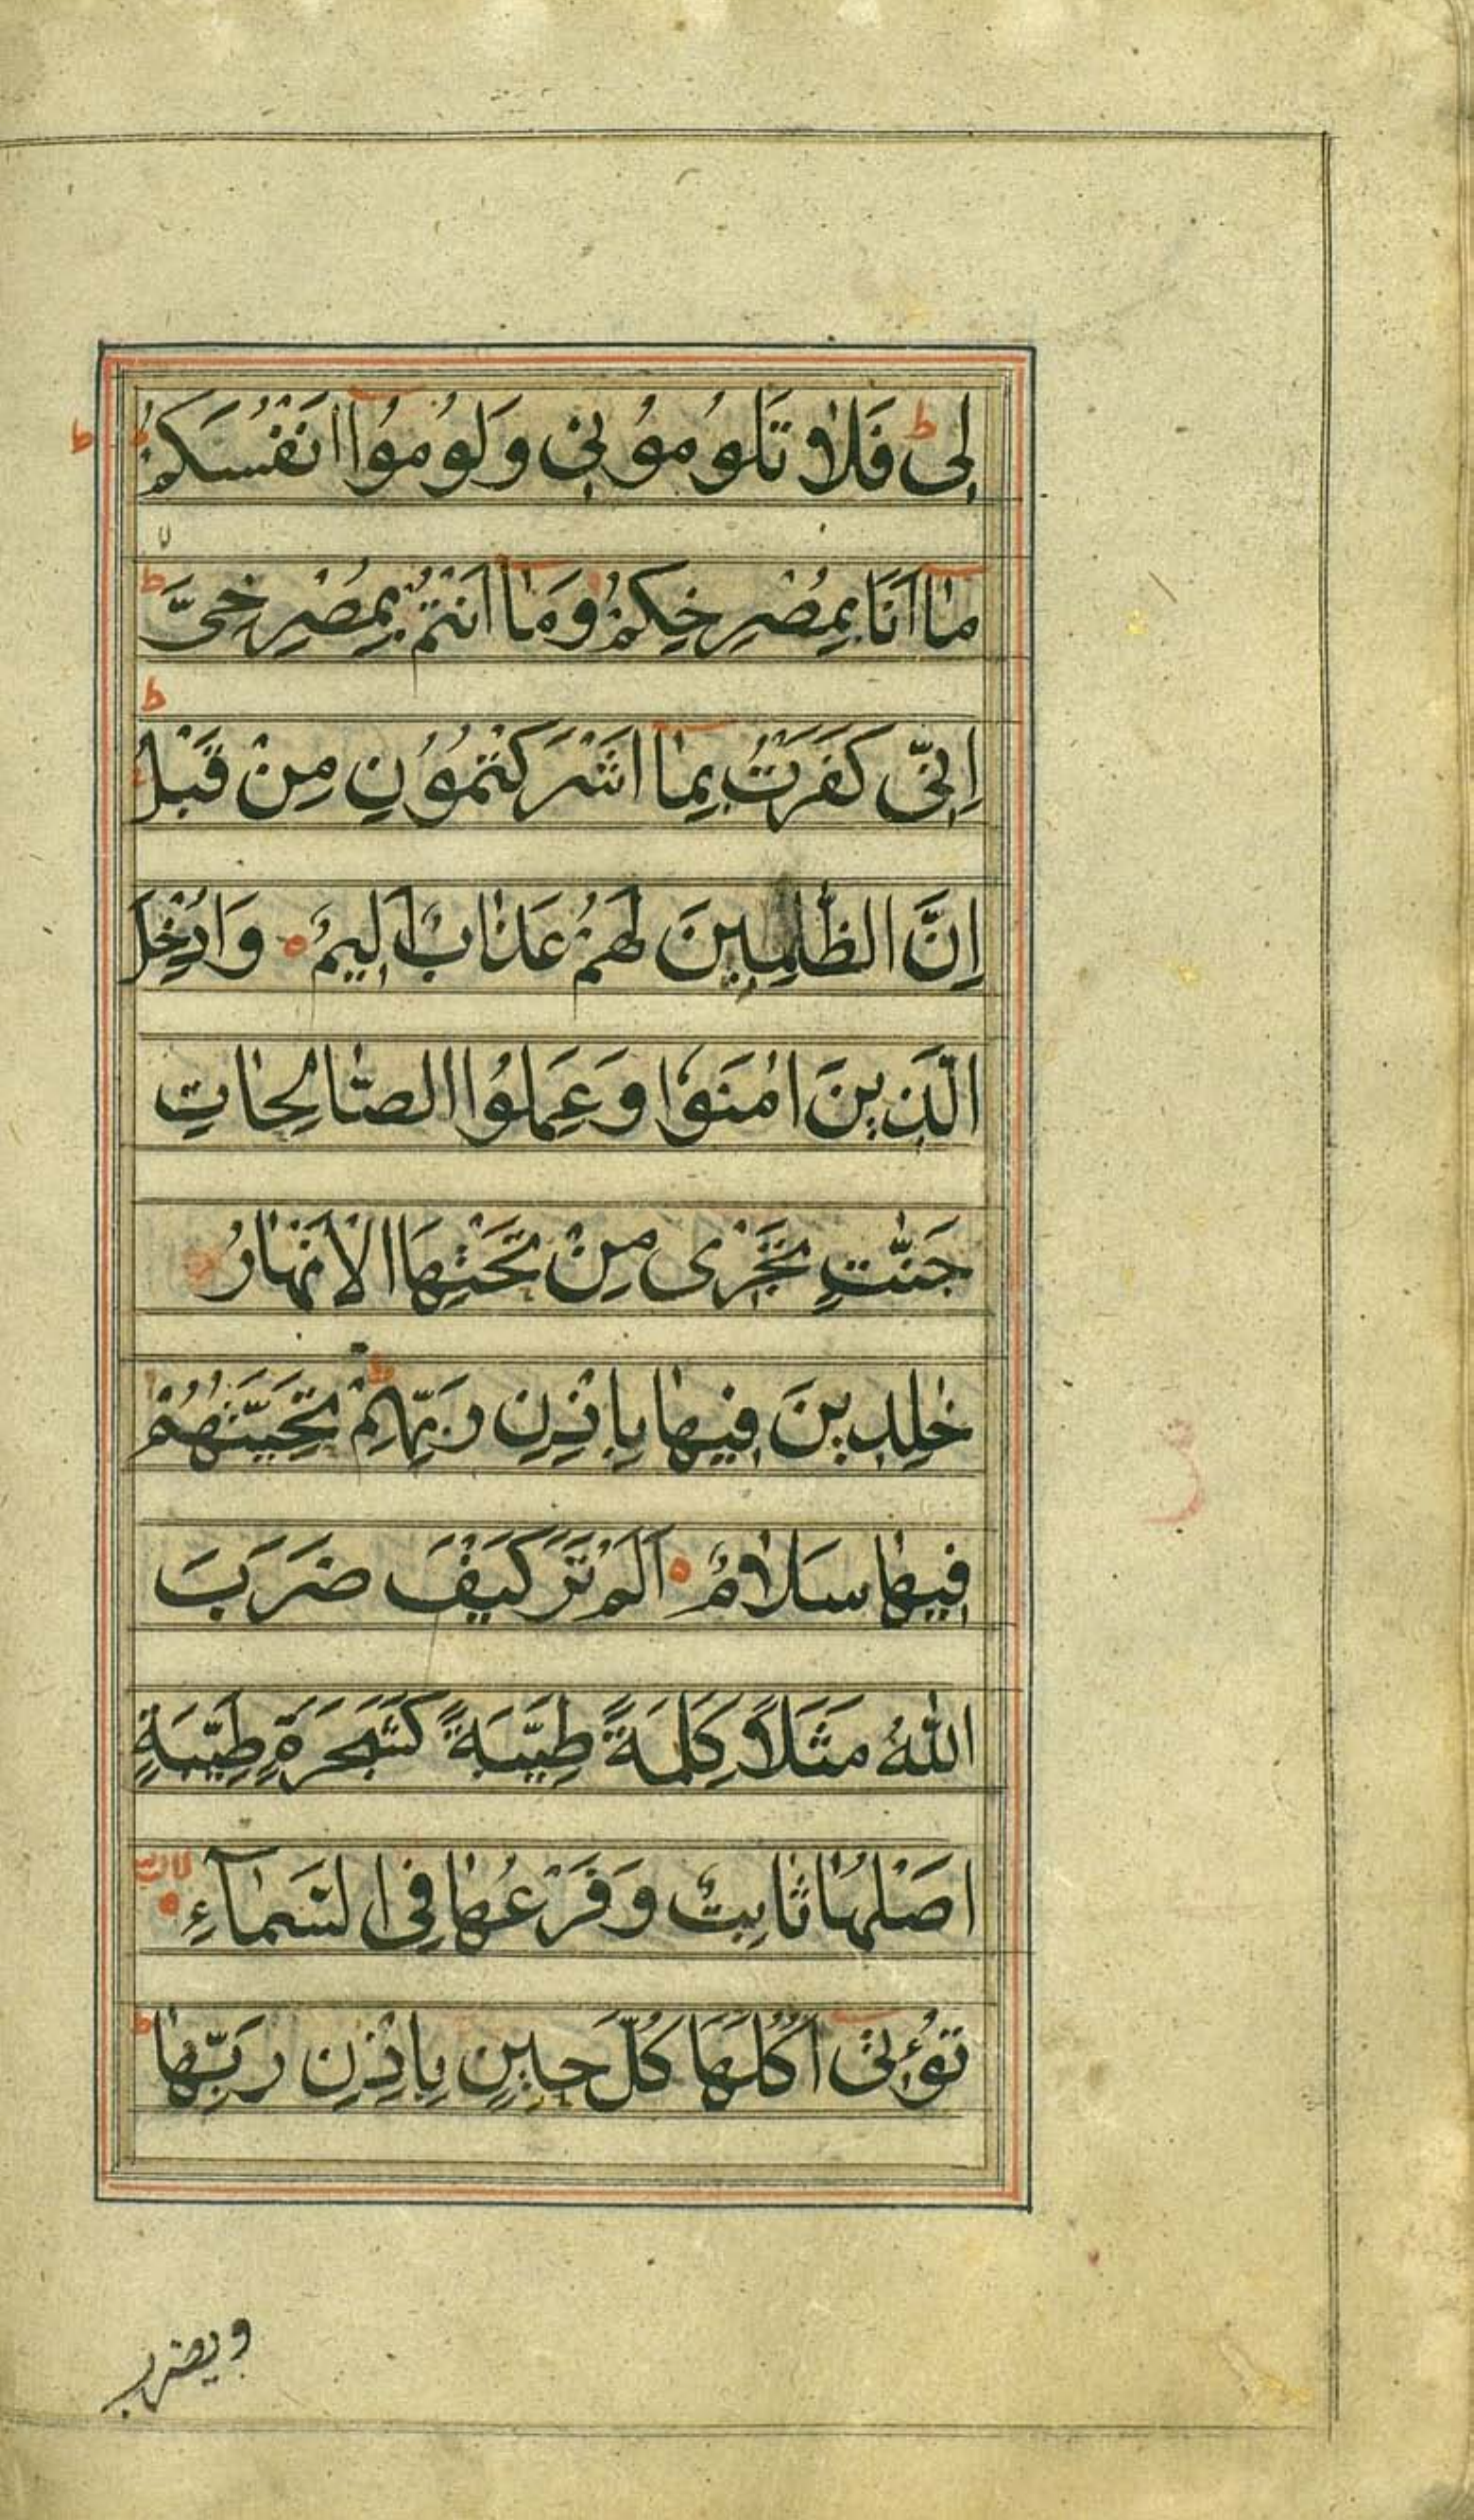 لِیْ ط فَلَا تَلُوْمُوْنِیْ وَلُوْمُوْٓا اَنْفُسَكُمْ ط
مَآ اَنَا بِمُصْرِخِكُمْ وَمَآ اَنْتُمْ بِمُصْرِخِیَّ ط
اِنِّیْ كَفَرْتُ بِمَآ اَشْرَكْتُمُوْنِ مِنْ قَبْلُ ط
اِنَّ الظّٰلِمِیْنَ لَهُمْ عَذَابٌ اَلِیْمٌ ۝ وَاُدْخِلَ
الَّذِیْنَ اٰمَنُوْا وَعَمِلُوا الصَّالِحَاتِ
جَنّٰتٍ تَجْرِیْ مِنْ تَحْتِهَا الْاَنْهَارُ
خٰلِدِیْنَ فِیْهَا بِاِذْنِ رَبِّهِمْ ط تَحِیَّتُهُمْ
فِیْهَا سَلَامٌ ۝ اَلَمْ تَرَ كَیْفَ ضَرَبَ
اللّٰهُ مَثَلًا كَلِمَةً طَیِّبَةً كَشَجَرَةٍ طَیِّبَةٍ
اَصْلُهَا ثَابِتٌ وَفَرْعُهَا فِی السَّمَآءِ ۝
تُؤْتِیْٓ اُكُلَهَا كُلَّ حِیْنٍ بِاِذْنِ رَبِّهَا ط
ویضرب